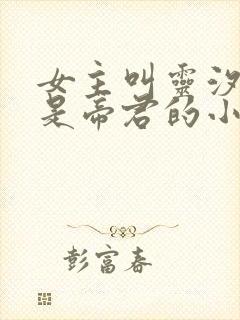 女主叫靈汐
是帝君的小
彭富春